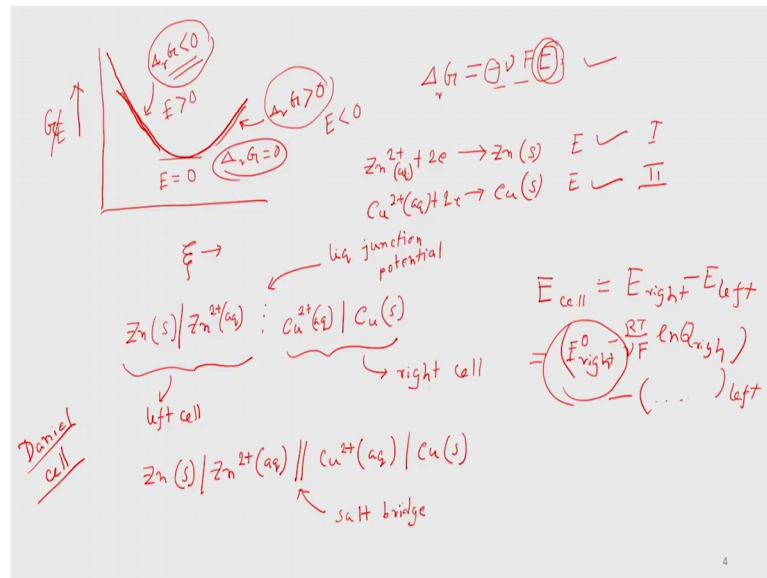 ΔᵣG<0
E>0
G/E ↑
ΔᵣG>0
E<0
ΔᵣG=0
E=0
ξ →
ΔᵣG = -νFE ✓
Zn²⁺(aq)+2e → Zn(s) E ✓ I
Cu²⁺(aq)+2e → Cu(s) E ✓ II
liq junction
potential
Zn(s)/Zn²⁺(aq) ⋮ Cu²⁺(aq) | Cu(s)
left cell
right cell
E cell = E right - E left
= (E⁰ right - RT/νF lnQ righ)
- (....) left
Daniel
cell
Zn(s)/Zn²⁺(aq) // Cu²⁺(aq) | Cu(s)
salt bridge
4